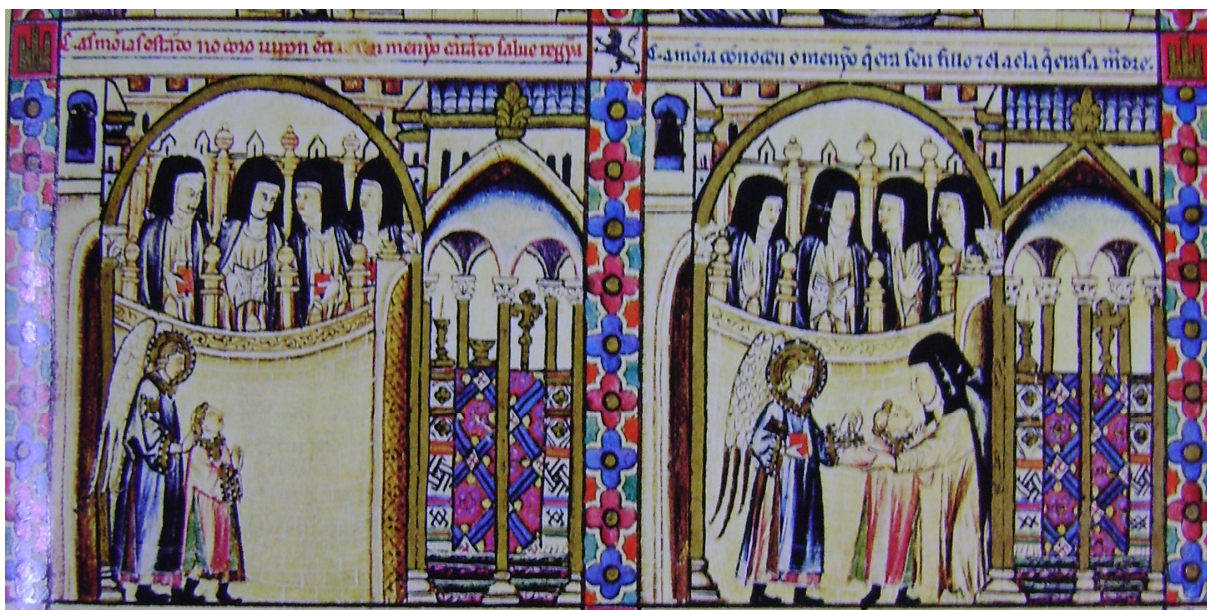 C. as mõias estãdo no coro uiron menỹo cãtãdo salue regỹa
C. a mõia cõnoceu o menỹo q̃ era seu fillo ⁊ el a ela q̃ era sa m̃dre.